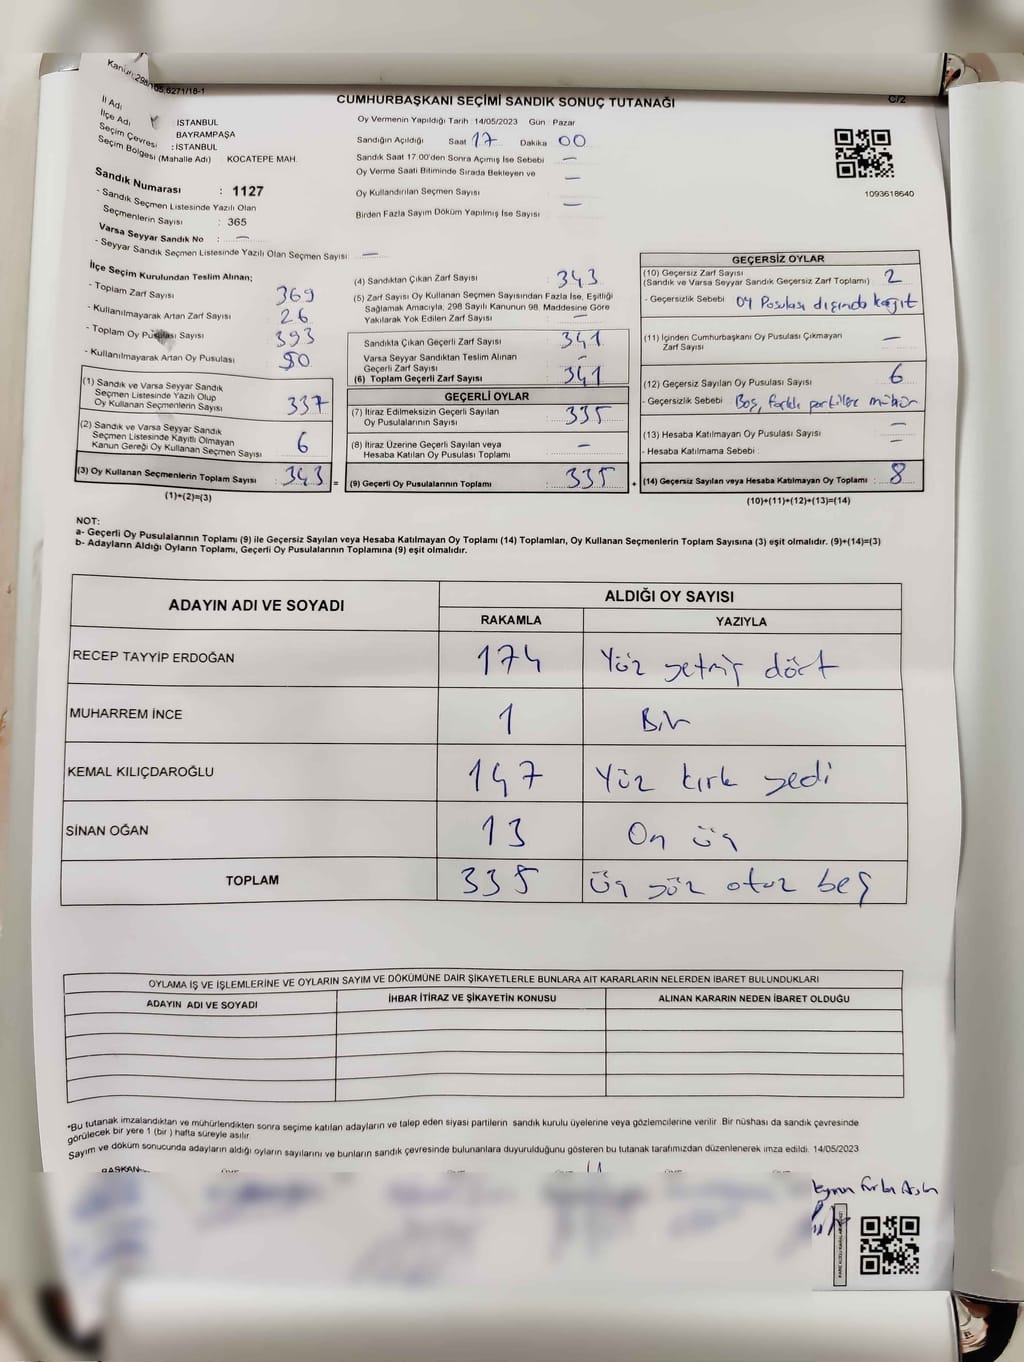 Kanun:298/105,6271/18-1
CUMHURBAŞKANI SEÇİMİ SANDIK SONUÇ TUTANAĞI
C/2
İl Adı
: İSTANBUL
İlçe Adı
BAYRAMPAŞA
Seçim Çevresi
: İSTANBUL
Seçim Bölgesi (Mahalle Adı) KOCATEPE MAH.
Sandık Numarası : 1127
- Sandık Seçmen Listesinde Yazılı Olan
Seçmenlerin Sayısı : 365
Varsa Seyyar Sandık No : —
- Seyyar Sandık Seçmen Listesinde Yazılı Olan Seçmen Sayısı: —
Oy Vermenin Yapıldığı Tarih : 14/05/2023 Gün : Pazar
Sandığın Açıldığı Saat 17 Dakika 00
Sandık Saat 17:00'den Sonra Açımış İse Sebebi —
Oy Verme Saati Bitiminde Sırada Bekleyen ve
Oy Kullandırılan Seçmen Sayısı —
Birden Fazla Sayım Döküm Yapılmış İse Sayısı —
1093618640
İlçe Seçim Kurulundan Teslim Alınan;
- Toplam Zarf Sayısı 369
- Kullanılmayarak Artan Zarf Sayısı 26
- Toplam Oy Pusulası Sayısı 393
- Kullanılmayarak Artan Oy Pusulası 50
(1) Sandık ve Varsa Seyyar Sandık
Seçmen Listesinde Yazılı Olup
Oy Kullanan Seçmenlerin Sayısı : 337
(2) Sandık ve Varsa Seyyar Sandık
Seçmen Listesinde Kayıtlı Olmayan
Kanun Gereği Oy Kullanan Seçmen Sayısı 6
(3) Oy Kullanan Seçmenlerin Toplam Sayısı : 343 =
(1)+(2)=(3)
(4) Sandıktan Çıkan Zarf Sayısı 343
(5) Zarf Sayısı Oy Kullanan Seçmen Sayısından Fazla İse, Eşitliği
Sağlamak Amacıyla, 298 Sayılı Kanunun 98. Maddesine Göre
Yakılarak Yok Edilen Zarf Sayısı —
Sandıkta Çıkan Geçerli Zarf Sayısı 341
Varsa Seyyar Sandıktan Teslim Alınan
Geçerli Zarf Sayısı —
(6) Toplam Geçerli Zarf Sayısı 341
GEÇERLİ OYLAR
(7) İtiraz Edilmeksizin Geçerli Sayılan
Oy Pusulalarının Sayısı 335
(8) İtiraz Üzerine Geçerli Sayılan veya
Hesaba Katılan Oy Pusulası Toplamı —
(9) Geçerli Oy Pusulalarının Toplamı : 335 +
GEÇERSİZ OYLAR
(10) Geçersiz Zarf Sayısı
(Sandık ve Varsa Seyyar Sandık Geçersiz Zarf Toplamı) 2
- Geçersizlik Sebebi Oy Pusulası dışında kağıt
(11) İçinden Cumhurbaşkanı Oy Pusulası Çıkmayan
Zarf Sayısı —
(12) Geçersiz Sayılan Oy Pusulası Sayısı 6
- Geçersizlik Sebebi Boş, farklı partiler mühür
(13) Hesaba Katılmayan Oy Pusulası Sayısı —
- Hesaba Katılmama Sebebi : —
(14) Geçersiz Sayılan veya Hesaba Katılmayan Oy Toplamı : 8
(10)+(11)+(12)+(13)=(14)
NOT:
a- Geçerli Oy Pusulalarının Toplamı (9) ile Geçersiz Sayılan veya Hesaba Katılmayan Oy Toplamı (14) Toplamları, Oy Kullanan Seçmenlerin Toplam Sayısına (3) eşit olmalıdır. (9)+(14)=(3)
b- Adayların Aldığı Oyların Toplamı, Geçerli Oy Pusulalarının Toplamına (9) eşit olmalıdır.
ADAYIN ADI VE SOYADI
ALDIĞI OY SAYISI
RAKAMLA YAZIYLA
RECEP TAYYİP ERDOĞAN 174 Yüz yetmiş dört
MUHARREM İNCE 1 Bir
KEMAL KILIÇDAROĞLU 147 Yüz kırk yedi
SİNAN OĞAN 13 On üç
TOPLAM 335 üç yüz otuz beş
OYLAMA İŞ VE İŞLEMLERİNE VE OYLARIN SAYIM VE DÖKÜMÜNE DAİR ŞİKAYETLERLE BUNLARA AİT KARARLARIN NELERDEN İBARET BULUNDUKLARI
ADAYIN ADI VE SOYADI İHBAR İTİRAZ VE ŞİKAYETİN KONUSU ALINAN KARARIN NEDEN İBARET OLDUĞU
*Bu tutanak imzalandıktan ve mühürlendikten sonra seçime katılan adayların ve talep eden siyasi partilerin sandık kurulu üyelerine veya gözlemcilerine verilir. Bir nüshası da sandık çevresinde
görülecek bir yere 1 (bir ) hafta süreyle asılır.
Sayım ve döküm sonucunda adayların aldığı oyların sayılarını ve bunların sandık çevresinde bulunanlara duyurulduğunu gösteren bu tutanak tarafımızdan düzenlenerek imza edildi. 14/05/2023
BAŞKAN